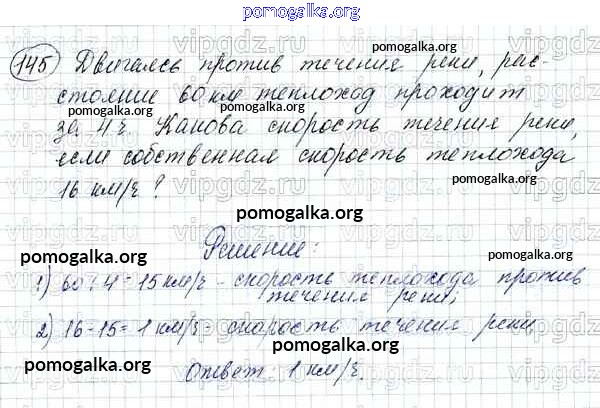 pomogalka.org
145 Двигаясь против течения реки, рас-
стояние 60 км теплоход проходит
за 4 ч. Какова скорость течения реки,
если собственная скорость теплохода
16 км/ч?
pomogalka.org
Решение:
1) 60 : 4 = 15 км/ч - скорость теплохода против
течения реки;
2) 16 - 15 = 1 км/ч - скорость течения реки
Ответ: 1 км/ч.
pomogalka.org